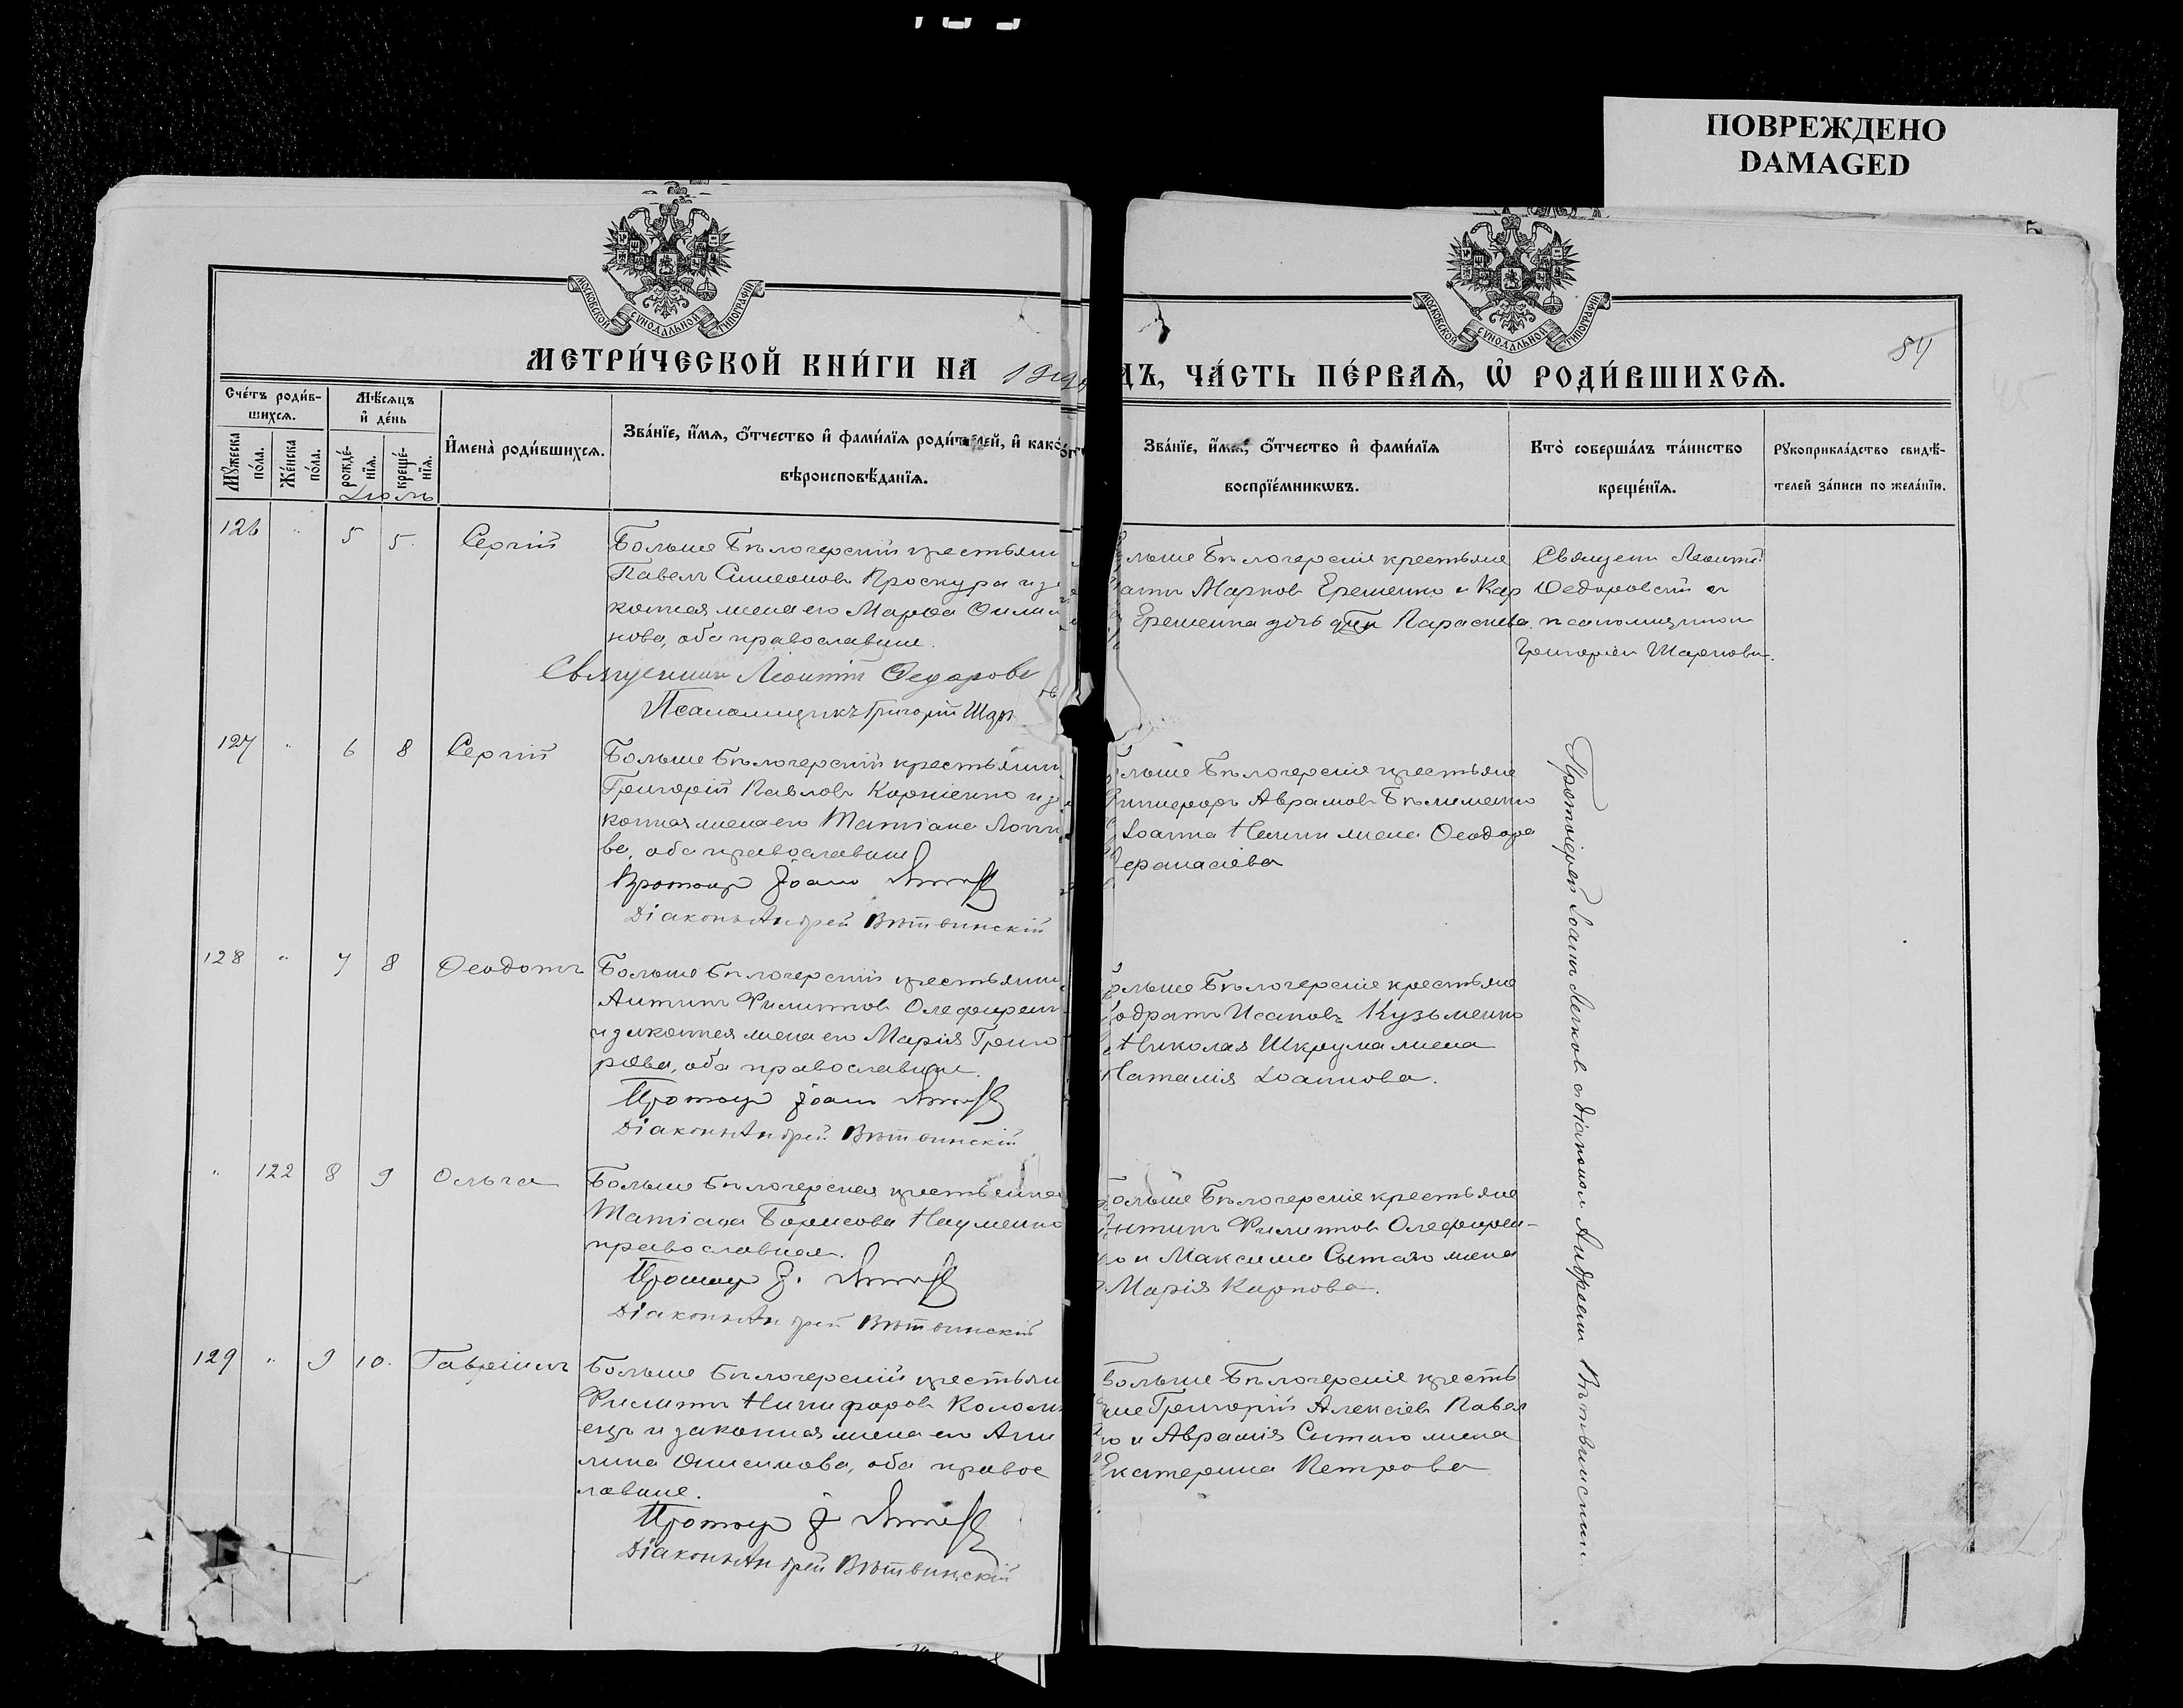 ПОВРЕЖДЕНО
DAMAGED
МОСКОВСКОЙ СУНОДАЛЬНОЙ ТИПОГРАФІИ
МОСКОВСКОЙ СУНОДАЛЬНОЙ ТИПОГРАФІИ
84
МЕТРИ́ЧЕСКОЙ КНИ́ГИ НА
ДЪ, ЧА́СТЬ ПЕ́РВАѦ, Ѡ҆ РОДИ́ВШИХСѦ.
Сче́тъ роди́в-
шихсѧ.
Мꙋ́жеска по́ла.
Же́нска по́ла.
Мѣ́сѧцъ
и҆ де́нь
рожде́-нїѧ.
креще́-нїѧ.
И҆мена̀ роди́вшихсѧ.
Зва́нїе, и҆́мѧ, ѻ҆́тчество и҆ фами́лїѧ роди́телей, и҆ како́
вѣроисповѣ́данїѧ.
Зва́нїе, и҆́мѧ, ѻ҆́тчество и҆ фами́лїѧ
воспрїе́мникѡвъ.
Кто̀ соверша́лъ та́инство
креще́нїѧ.
Рꙋкоприкла́дство свидѣ́-
телей за́писи по жела́нїю.
Іюль
126 " 5 5. Сергій
Больше Бѣлозерскій крестьянин
Павелъ Симеоновъ Проскура и за
конная жена его Марѳа Фили
нова, оба православные.
Священникъ Леонтій Федоровс
Псаломщикъ Григорій Шар
льше Бѣлозерскіе крестьяне
Марковъ Ерешенко и Кар
Ерешенка дочь Параскева
Священ Леонтій
Федоровскій съ
псаломщикомъ
Григоріемъ Шарковы.
127 " 6 8 Сергій
Больше Бѣлозерскій крестьянин
Григорій Павловъ Корніенко и за
конная жена его Татіана Логи
ва, оба православные
Протоіер Іоанн
Діаконъ Андрей Вѣтвинскій
льше Бѣлозерскіе крестьяне
Никифоръ Аврамовъ
Іоанна жена Ѳеодора
Афанасіева
128 " 7 8 Ѳеодотъ
Больше Бѣлозерскій крестьянин
Антипъ Филиповъ Олефирен
и законная жена его Марія Григо
рьева, оба православные.
Протоіер Іоанн
Діаконъ Андрей Вѣтвинскій
ольше Бѣлозерскіе крестьяне
Кодратъ Исаковъ Кузьменко
Николая Шкрума жена
Наталія Іоаннова.
" 122 8 9 Ольга
Больше Бѣлозерская крестьянка
Татіана Борисова Науменко
православная.
Протоіер І.
Діаконъ Андрей Вѣтвинскій
ольше Бѣлозерскіе крестьяне
Антипъ Филиповъ Олефирен-
ко и Максима Сытаго жена
Марія Карпова.
129 " 9 10. Гавріилъ
Больше Бѣлозерскій крестьян
Филипъ Никифоровъ Колом
ецъ и законная жена его Аку
лина Онисимова, оба правос
лавные.
Протоіер І
Діаконъ Андрей Вѣтвинскій
Больше Бѣлозерскіе кресть
яне Григорій Алексіевъ Павел
ко и Аврамія Сытаго жена
Екатерина Петрова
Протоіерей Іоаннъ Легковъ съ діакономъ Андреемъ Вѣтвинскимъ